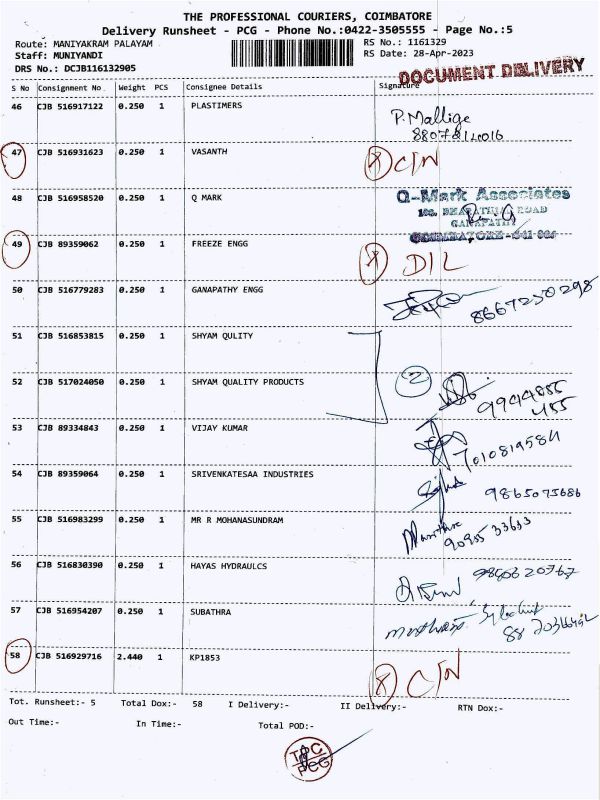 THE PROFESSIONAL COURIERS, COIMBATORE
Delivery Runsheet - PCG - Phone No.:0422-3505555 - Page No.:5
Route: MANIYAKRAM PALAYAM RS No.: 1161329
Staff: MUNIYANDI RS Date: 28-Apr-2023
DRS No.: DCJB116132905
DOCUMENT DELIVERY
S No Consignment No Weight PCS Consignee Details Signature
46 CJB 516917122 0.250 1 PLASTIMERS P. Mallige
47 CJB 516931623 0.250 1 VASANTH X C/N
48 CJB 516958520 0.250 1 Q MARK Q-Mark Associates
GANAPATHY
COIMBATORE-641 006
49 CJB 89359062 0.250 1 FREEZE ENGG X D/L
50 CJB 516779283 0.250 1 GANAPATHY ENGG 8667250298
51 CJB 516853815 0.250 1 SHYAM QULITY
52 CJB 517024050 0.250 1 SHYAM QUALITY PRODUCTS 2 9944855
455
53 CJB 89334843 0.250 1 VIJAY KUMAR 7010819584
54 CJB 89359064 0.250 1 SRIVENKATESAA INDUSTRIES 9865075686
55 CJB 516983299 0.250 1 MR R MOHANASUNDRAM
56 CJB 516830390 0.250 1 HAYAS HYDRAULCS
57 CJB 516954207 0.250 1 SUBATHRA
58 CJB 516929716 2.440 1 KP1853 X C/N
Tot. Runsheet:- 5 Total Dox:- 58 I Delivery:- II Delivery:- RTN Dox:-
Out Time:- In Time:- Total POD:-
TPC
PCG